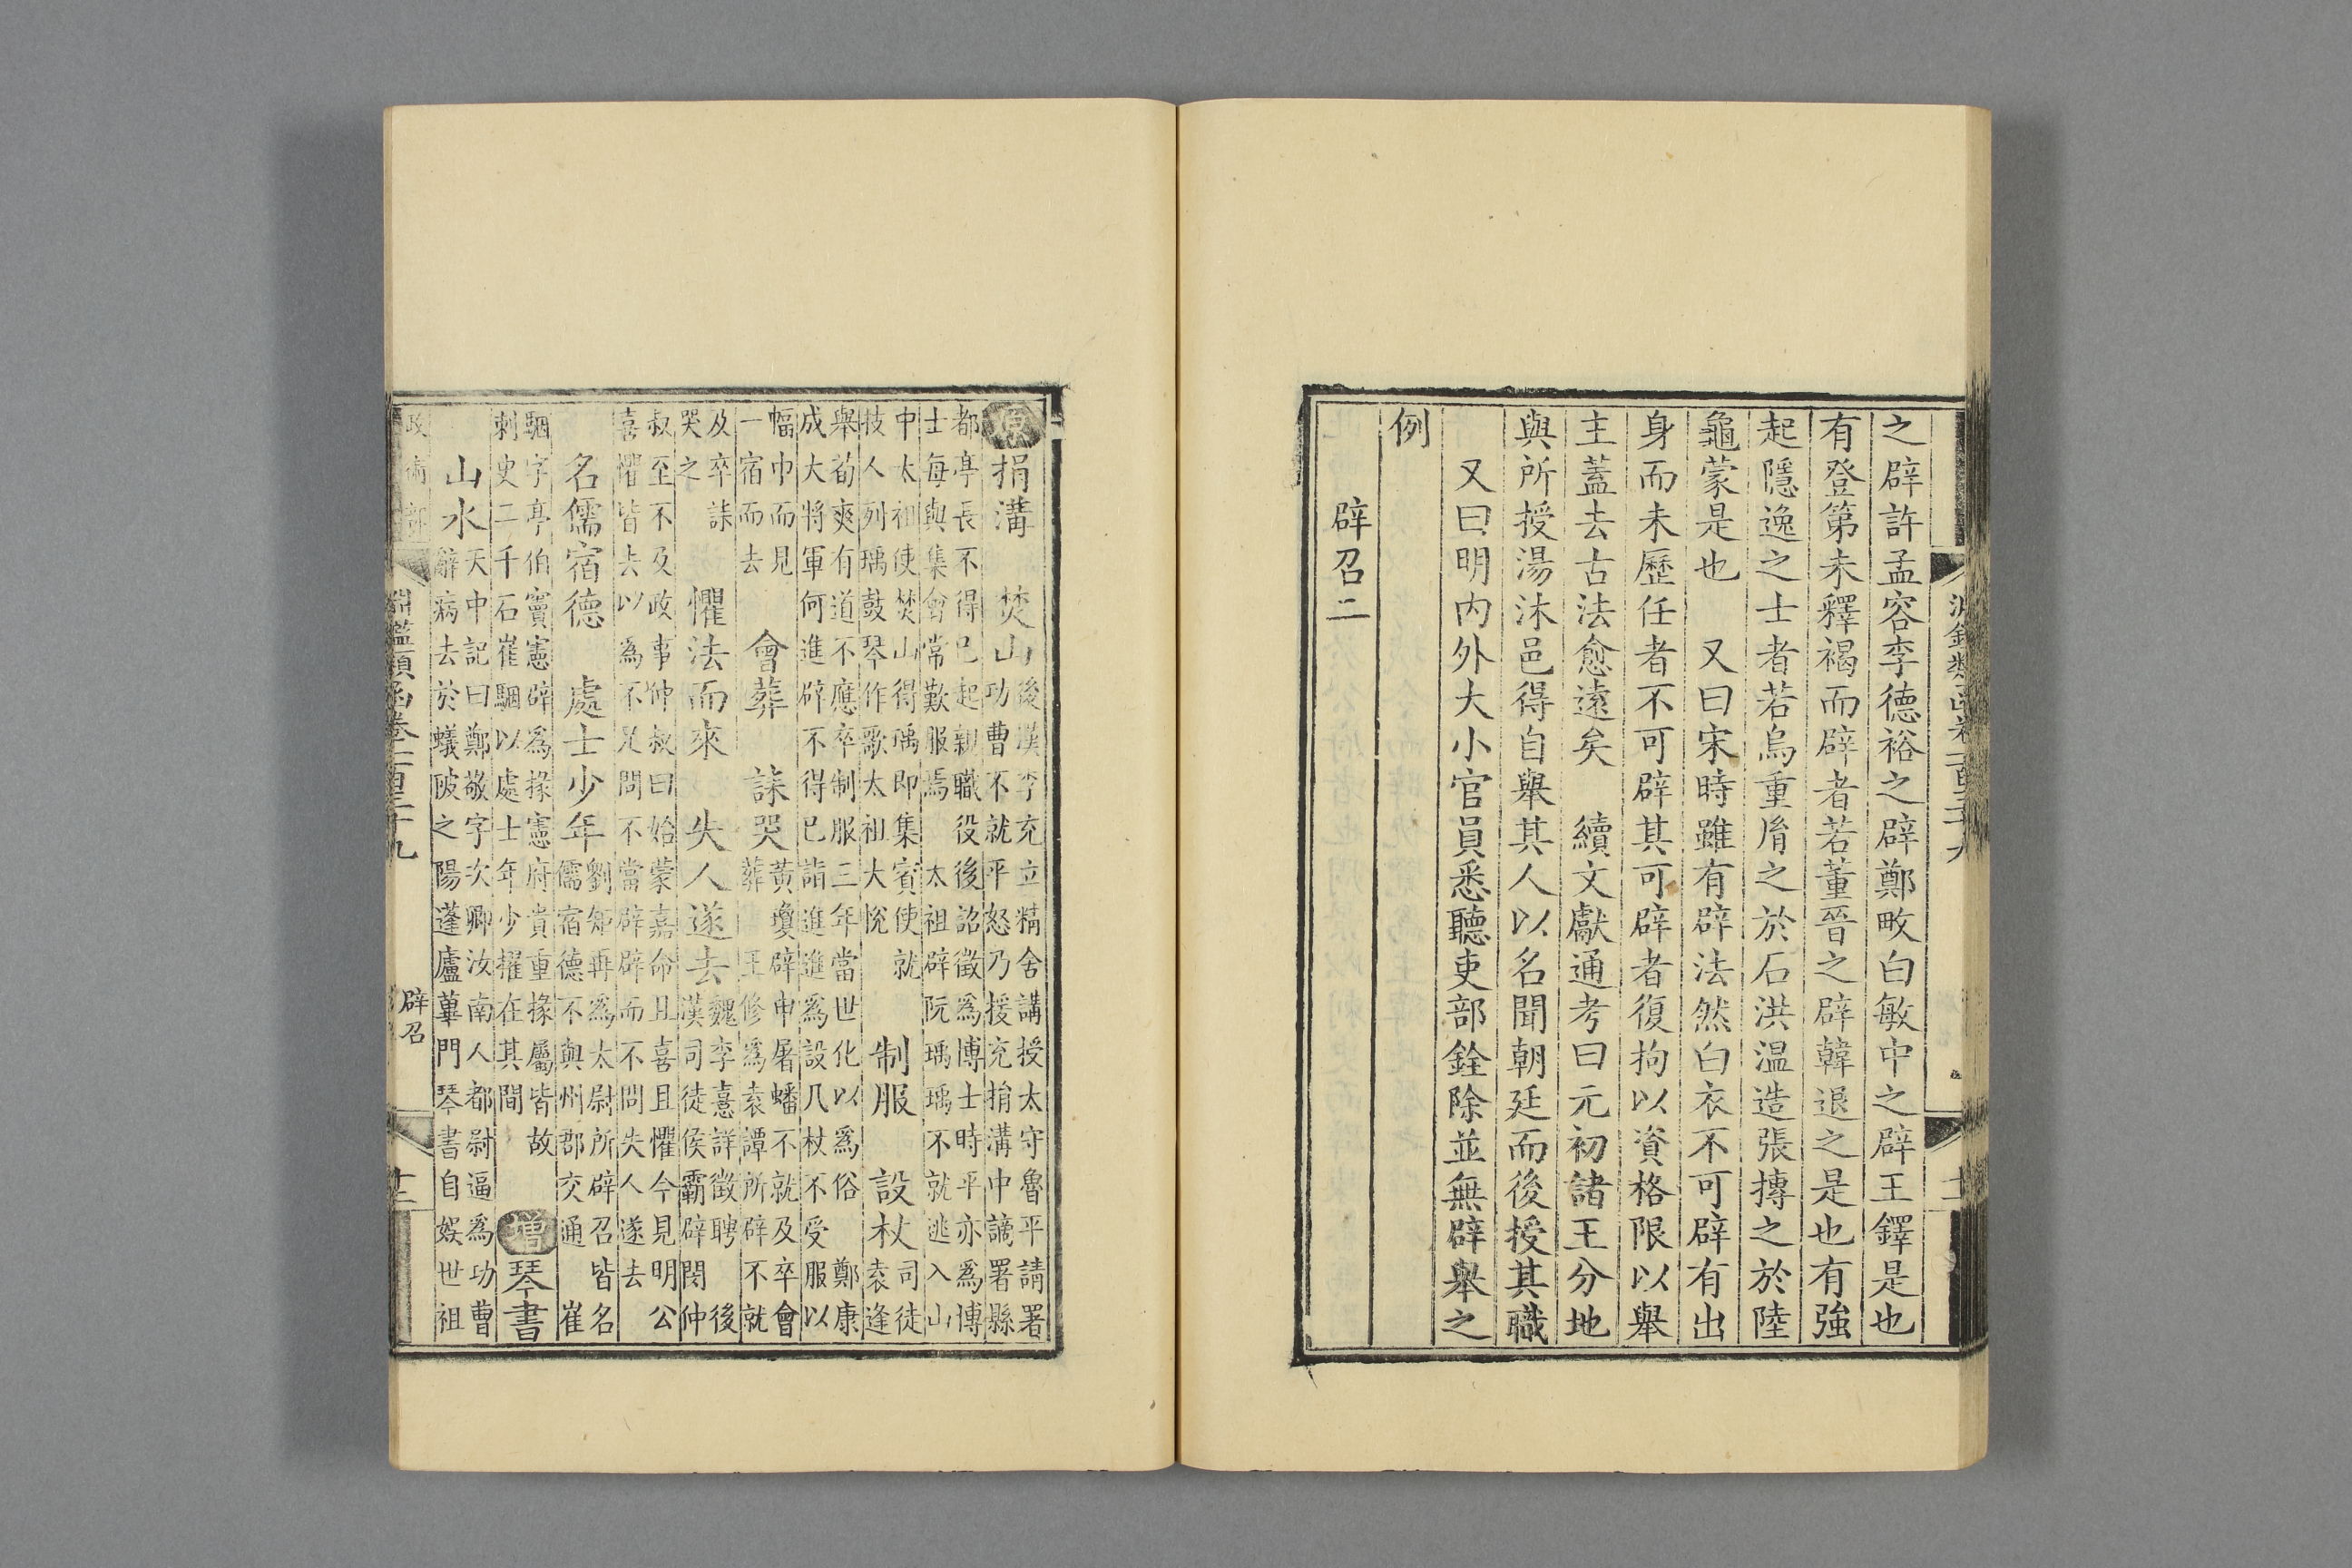 淵鑑類函卷一百三十九
之辟許孟容李德裕之辟鄭畋白敏中之辟王鐸是也
有登第未釋褐而辟者若董晉之辟韓退之是也有強
起隱逸之士者若烏重胤之於石洪温造張摶之於陸
龜蒙是也　又曰宋時雖有辟法然白衣不可辟有出
身而未歷任者不可辟其可辟者復拘以資格限以舉
主蓋去古法愈遠矣　續文獻通考曰元初諸王分地
與所授湯沐邑得自舉其人以名聞朝廷而後授其職
又曰明内外大小官員悉聽吏部銓除並無辟舉之
例
辟召二
原　捐溝　焚山
後漢李充立精舍講授太守魯平請署
功曹不就平怒乃援充捐溝中謫署縣
都亭長不得已起親職役後詔徵為博士時平亦為博
士每與集會常歎服焉　太祖辟阮瑀瑀不就逃入山
中太祖使焚山得瑀即集賓使就
技人列瑀鼓琴作歌太祖大悅
制服　設杖
司徒
袁逢
舉荀爽有道不應卒制服三年當世化以為俗　鄭康
成大將軍何進辟不得已詣進進為設几杖不受服以
幅巾而見
一宿而去
會葬　誄哭
黄瓊辟申屠蟠不就及卒會
葬　王修為袁譚所辟不就
及卒誄
哭之
懼法而來　失人遂去
魏李憙詳徵聘　後
漢司徒侯霸辟閔仲
叔至不及政事仲叔曰始蒙嘉命且喜且懼今見明公
喜懼皆去以為不足問不當辟辟而不問失人遂去
名儒宿德　處士少年
劉矩再為太尉所辟召皆名
儒宿德不與州郡交通　崔
駰字亭伯竇憲辟為掾憲府貴重掾屬皆故
刺史二千石崔駰以處士年少擢在其間
增　琴書
山水
天中記曰鄭敬字次卿汝南人都尉逼為功曹
辭病去於蟻陂之陽蓬廬蓽門琴書自娛世祖
政術部　淵鑑類函卷一百三十九　辟召　十二